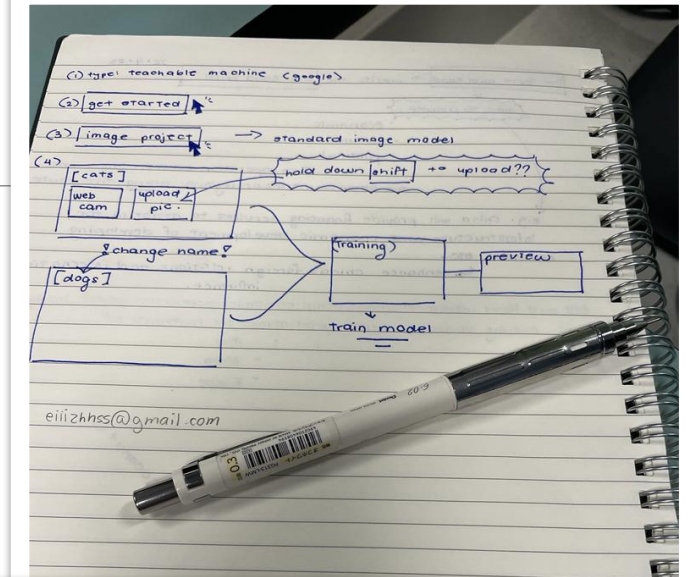 (1) type: teachable machine (google)
(2) get started
(3) image project → standard image model
(4)
[cats]
web cam
upload pic.
hold down shift to upload??
! change name !
[dogs]
(training)
preview
train model
eilizhhss@gmail.com
0.3